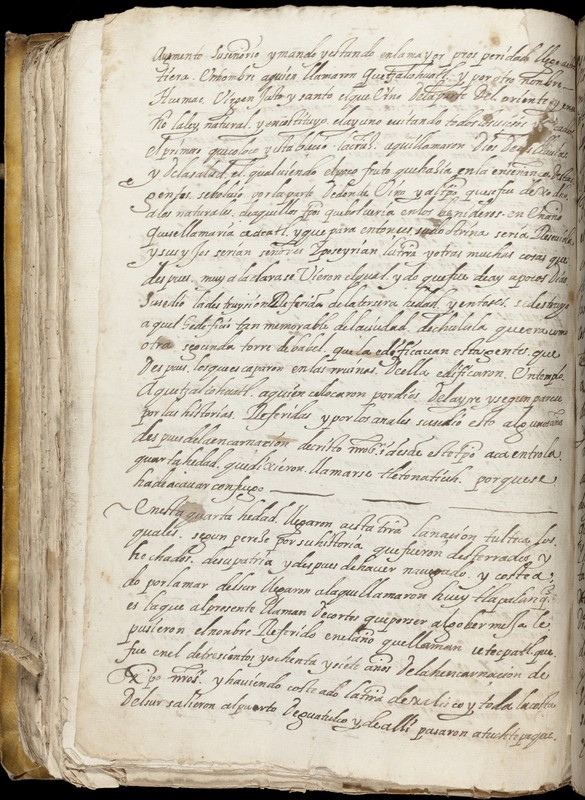 Aumento su señorio y mando y estando en la mayor prosperidad llego a esta
tierra. Un hombre a quien llamaron Quetzalcohuatl y por otro nombre
Huemac. Virgen Justo y santo el que vino de la parte del oriente y enseño
la ley natural y constituyo el ayuno evitando todos los vicios y pecados
el primero que coloco y estableçio la cruz. a que llamaron Dios de las lluvias
y de la salud. el qual viendo el poco fruto que hazia en la enseñança destas
gentes se bolvio por la parte de donde vino y al tpo que se fue dexo dho
a los naturales de aquellos tpos que bolveria en los benideros en un año
que se llamaria ce acatl. y que para entonces su doctrina seria Resevida
y sus hijos serian señores y poseyrian la tierra y otras muchas cosas que
despues muy a la clara se vieron el qual ydo que fue de ay a pocos dias
susedio la destruysion Referida de la tersera hedad y entoses se destruyo
aquel hedefisio tan memorable de la ciudad de cholula que era como
otra segunda torre de babel. que la edificavan estas gentes que
despues los que escaparon en las rruinas de ella edificaron un templo
a Quetzalcohuatl. a quien colocaron por dios del ayre y segun parese
por las historias Referidas y por los anales susedio esto algunos años
despues de la encarnasion de cristo nro sr. i desde este tpo aca entro la
quarta hedad que dixieron llamarse tletonatiuh. porque se
ha de acavar con fuego
En esta quarta hedad llegaron a esta tierra la nasion tulteca los
quales segun parese por su historia que fueron desterrados y
hechados de su patria y despues de haver navegado y costea
do por la mar del sur llegaron a la que llamaron huey tlapalan q
es la que al presente llaman de cortes que por ser algo bermeja le
pusieron el nombre Referido en el año que llaman ce tecpatl que
fue en el de tresientos y ochenta y siete años de la hencarnacion de
Xpo nro sr. y haviendo costeado la tierra de xalisco y toda la costa
del sur salieron al puerto de guatulco y de alli pasaron a tuchtepeque.